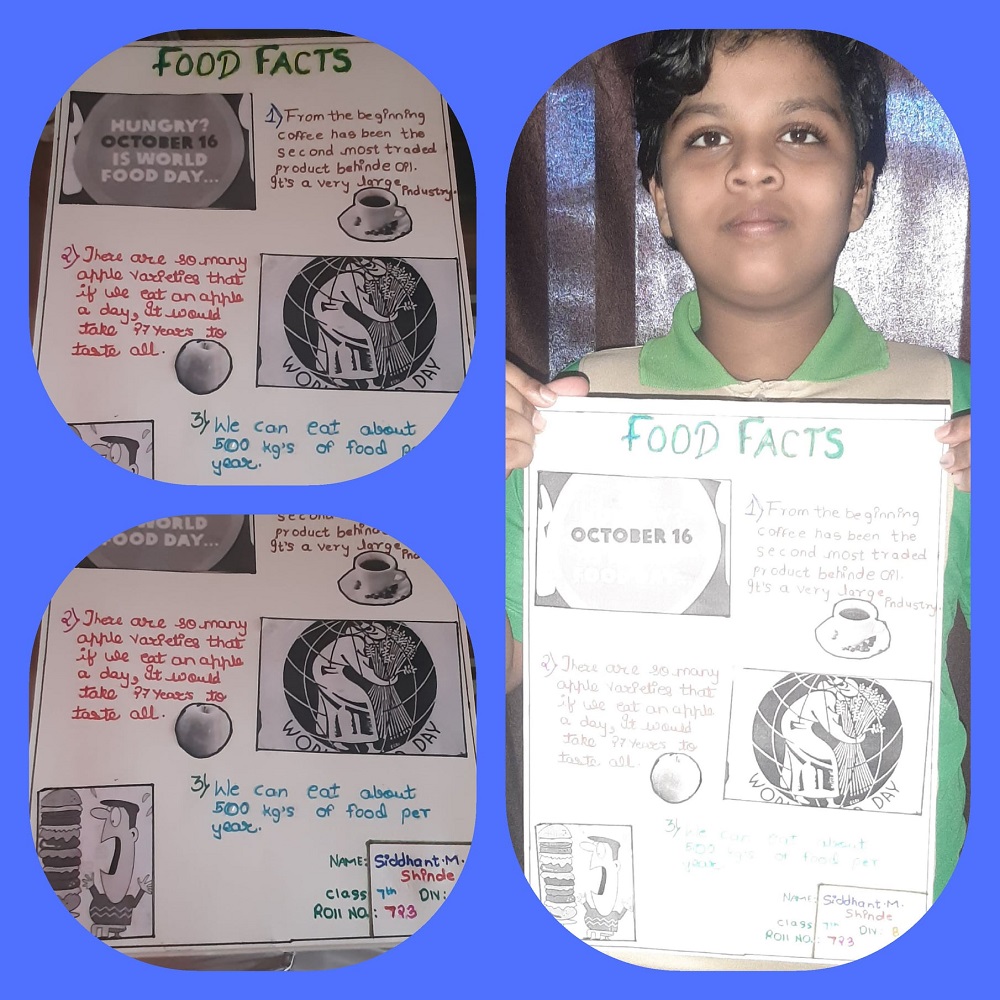 FOOD FACTS
HUNGRY?
OCTOBER 16
IS WORLD
FOOD DAY...
1) From the beginning
coffee has been the
second most traded
product behinde oil.
It's a very large industry.
2) There are so many
apple varieties that
if we eat an apple
a day, it would
take 27 Years to
taste all.
WOR D DAY
3) We can eat about
500 kg's of food pe
year.
WORLD
FOOD DAY...
second
product behind
It's a very large ind
2) There are so many
apple varieties that
if we eat an apple
a day, it would
take 27 Years to
taste all.
WOR D DAY
3) We can eat about
500 kg's of food per
year.
NAME: Siddhant.M.
Shinde
class 7th DIV:
Roll NO.: 723
FOOD FACTS
OCTOBER 16
FOOD DAY...
1) From the beginning
coffee has been the
second most traded
product behinde oil.
It's a very large industry.
2) There are so many
apple varieties that
if we eat an apple
a day, it would
take 27 Years to
taste all.
WOR D DAY
3) We can eat about
500 kg's of food per
year
NAME: Siddhant.M.
Shinde
class 7th DIV: B
Roll NO.: 723